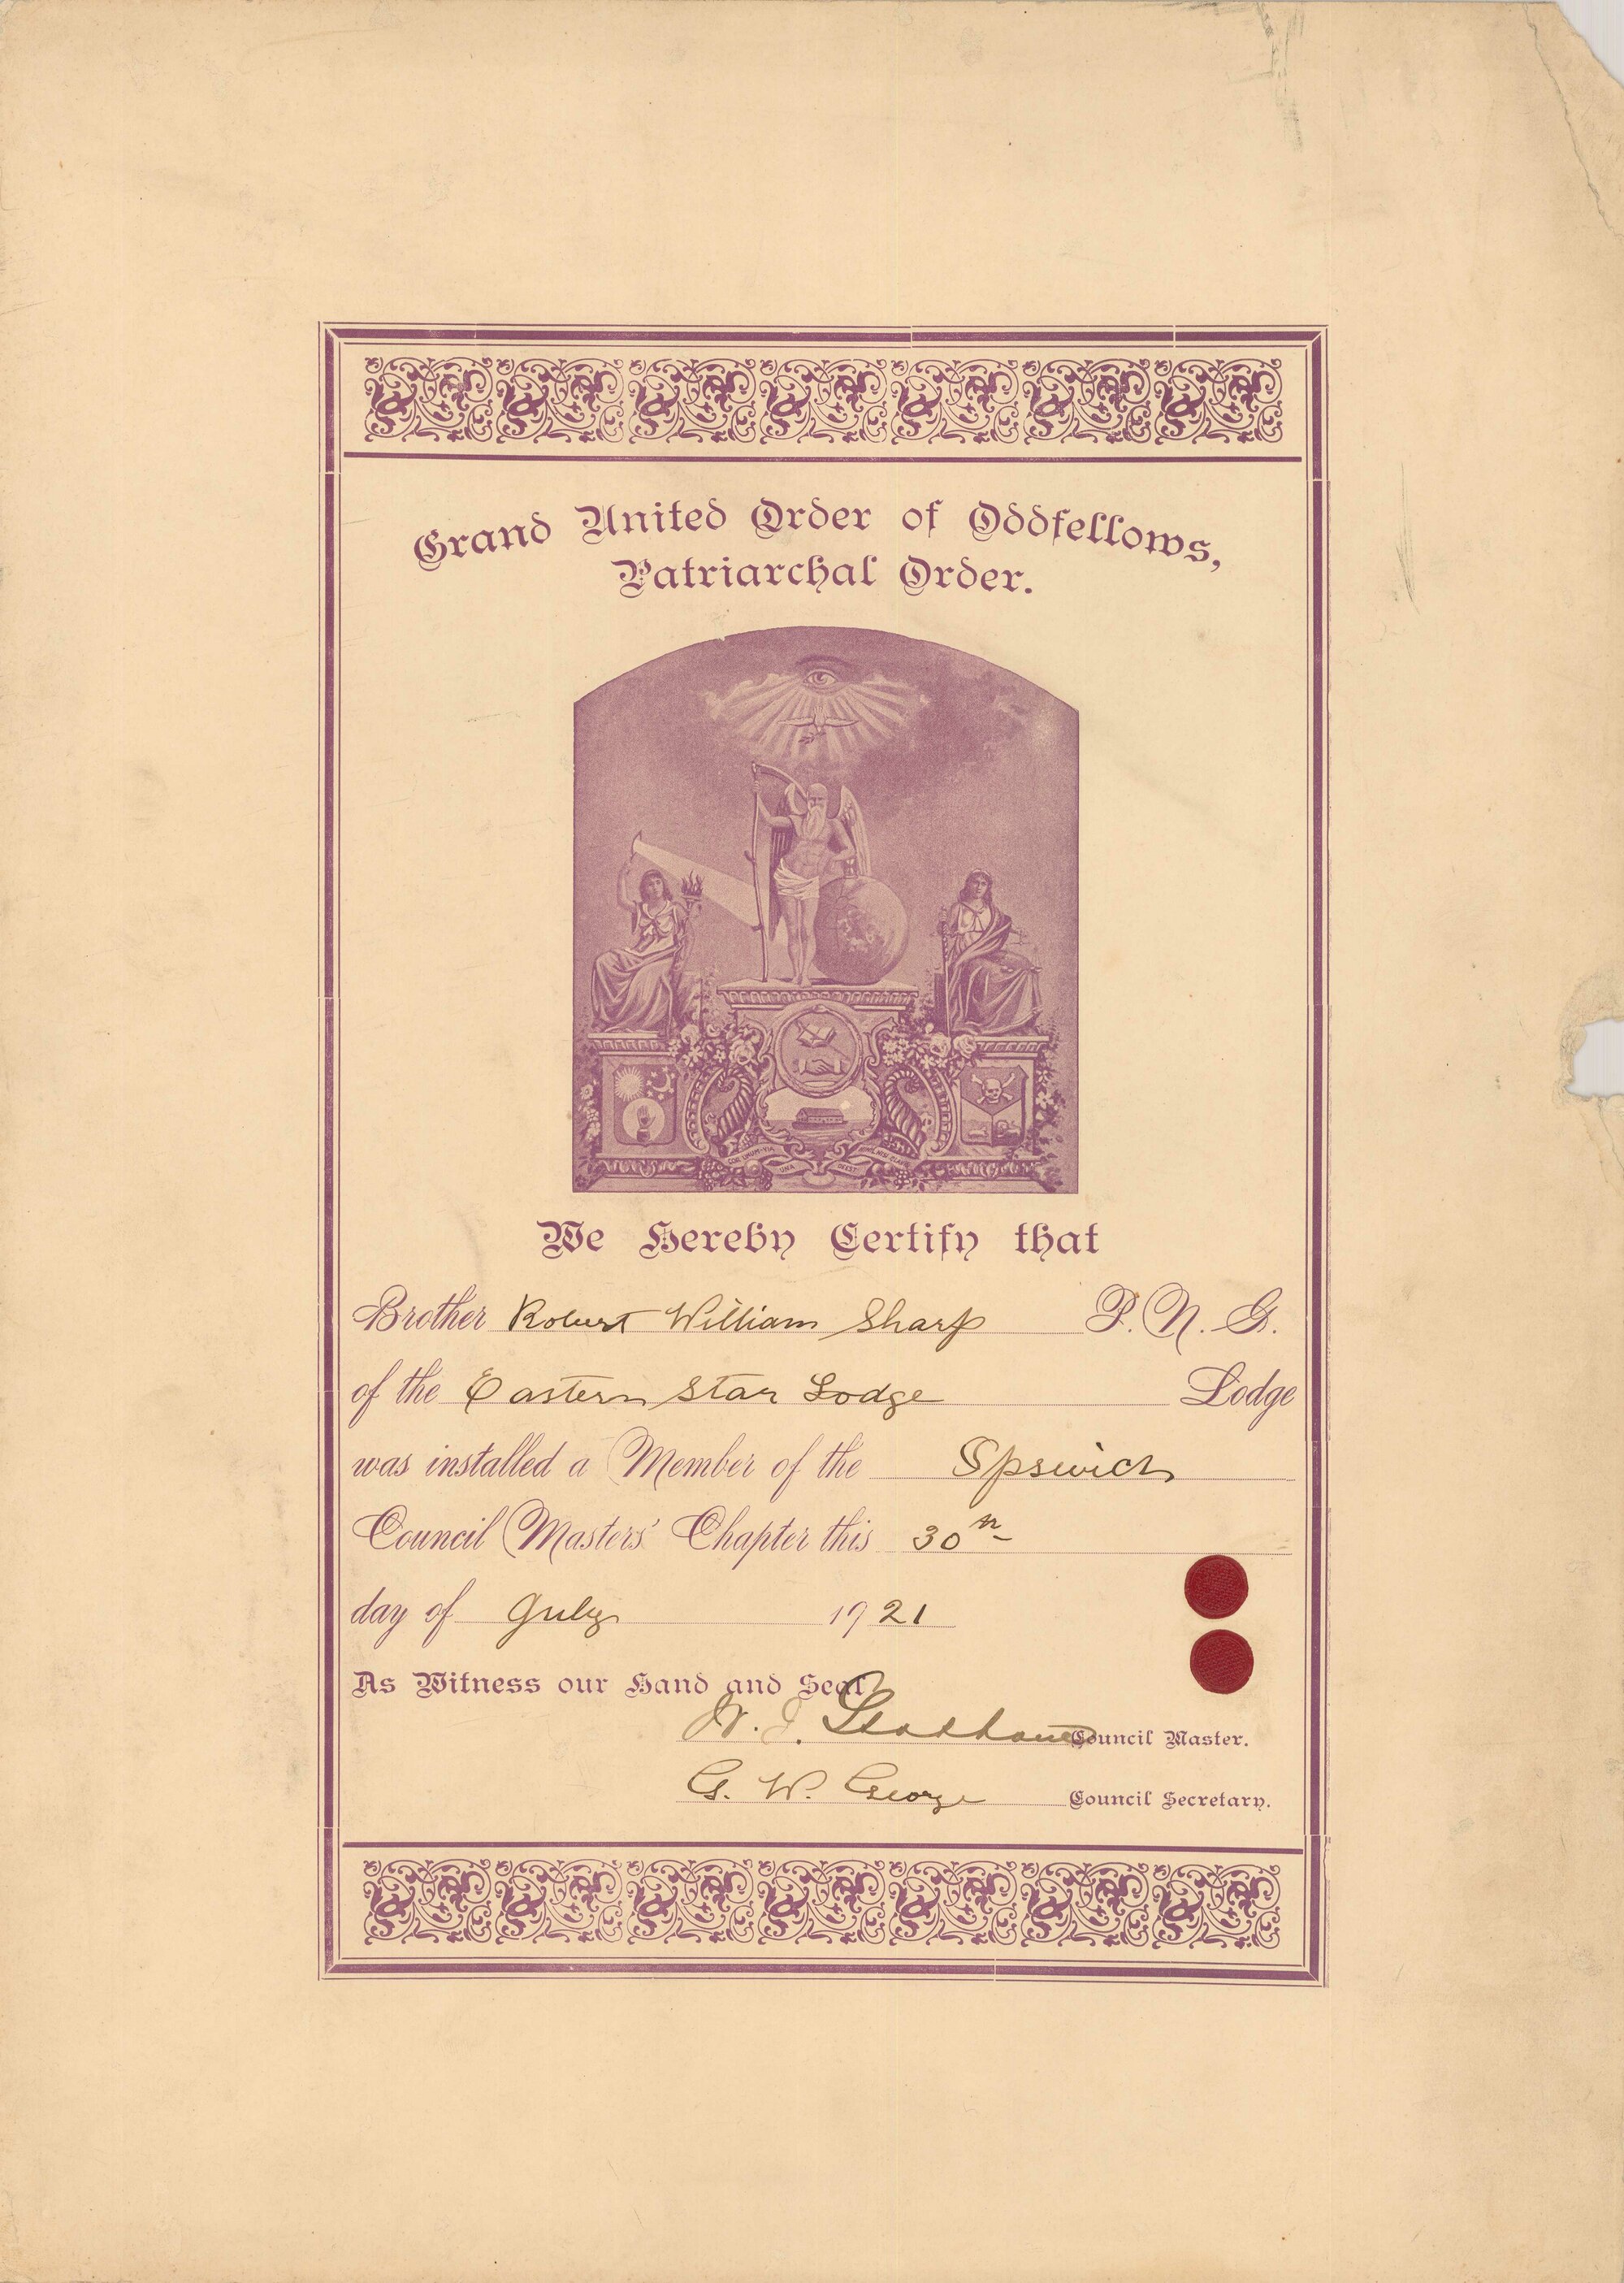 Grand United Order of Oddfellows,
Patriarchal Order.
COR UNUM·VIA
UNA
We Hereby Certify that
Brother Robert William Sharp P. N. G.
of the Eastern Star Lodge Lodge
was installed a Member of the Ipswich
Council Masters' Chapter this 30th
day of July 1921
As Witness our Hand and Seal
Council Master.
G. W. George Council Secretary.